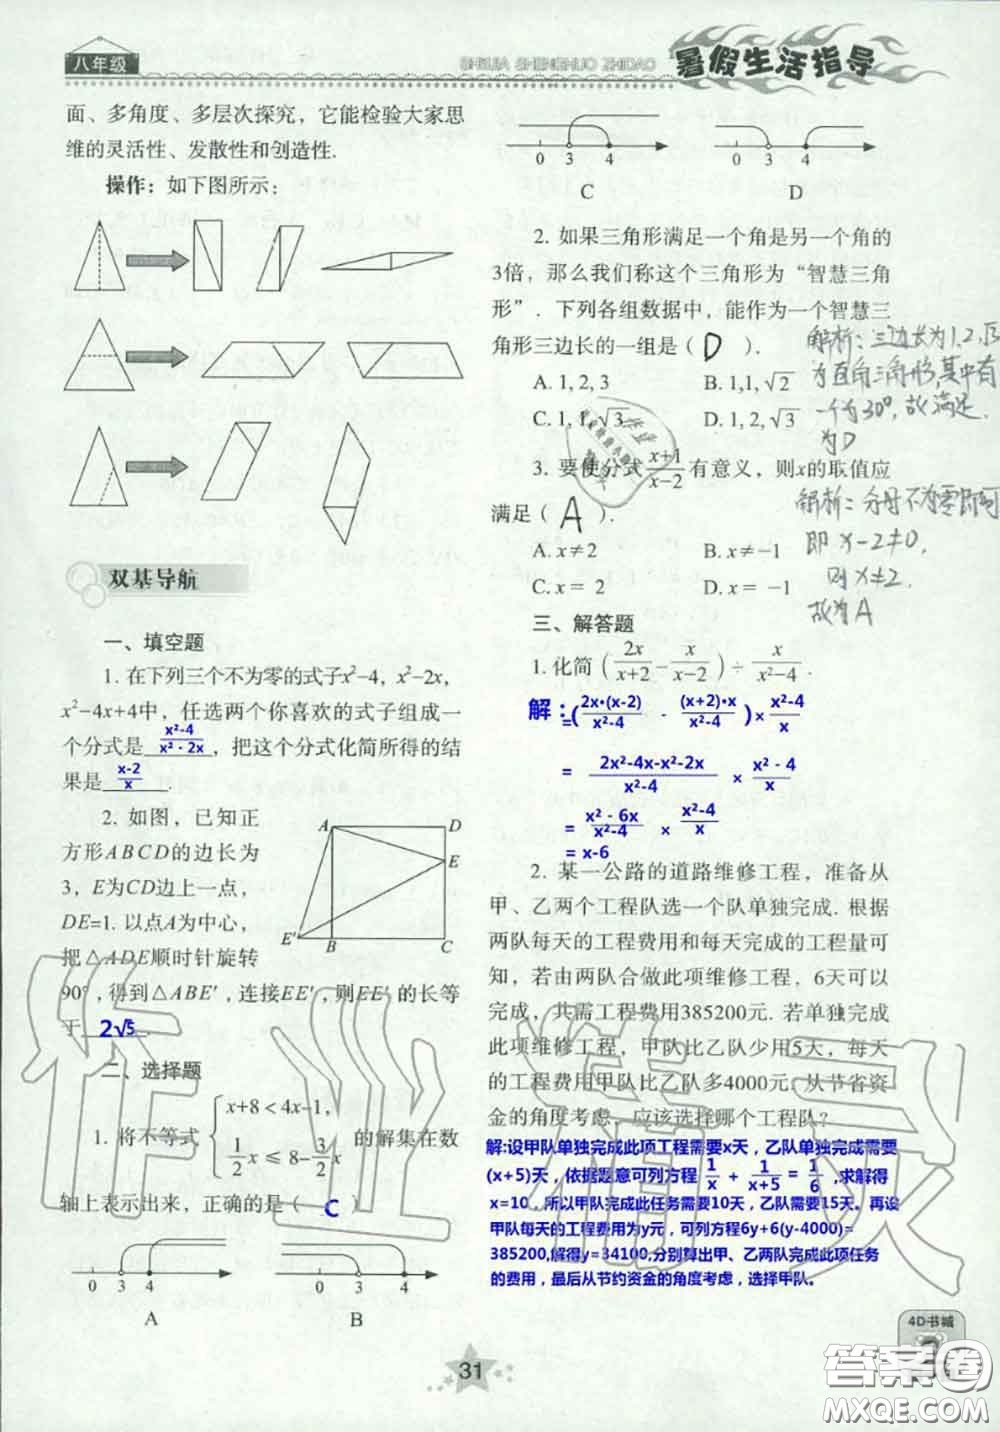 八年级
暑假生活指导
面、多角度、多层次探究，它能检验大家思
维的灵活性、发散性和创造性.
操作：如下图所示：
双基导航
一、填空题
1. 在下列三个不为零的式子x²-4，x²-2x，
x²-4x+4中，任选两个你喜欢的式子组成一
个分式是 x²-4/x²-2x，把这个分式化简所得的结
果是 x-2/x.
2. 如图，已知正
方形ABCD的边长为
3，E为CD边上一点，
DE=1. 以点A为中心，
把△ADE顺时针旋转
90°，得到△ABE′，连接EE′，则EE′的长等
于 2√5.
A D E E′ B C
二、选择题
1. 将不等式 { x+8＜4x-1, 1/2x ≤ 8-3/2x 的解集在数
轴上表示出来，正确的是（ C ）
0 3 4
A
0 3 4
B
0 3 4
C
0 3 4
D
2. 如果三角形满足一个角是另一个角的
3倍，那么我们称这个三角形为“智慧三角
形”. 下列各组数据中，能作为一个智慧三
角形三边长的一组是（ D ）.
A. 1, 2, 3 B. 1,1, √2
C. 1, 1, √3 D. 1, 2, √3
解析：三边长为1,2,√3
为直角三角形,其中有
一个为30°,故满足.
为D
3. 要使分式 x+1/x-2 有意义，则x的取值应
满足（ A ）.
A. x≠2 B. x≠-1
C. x= 2 D. x= -1
解析：分母不为零即可
即 x-2≠0,
则 x≠2.
故为A
三、解答题
1. 化简（2x/x+2 - x/x-2）÷ x/x²-4 .
解：=(2x·(x-2)/x²-4 - (x+2)·x/x²-4)×x²-4/x
= 2x²-4x-x²-2x/x²-4 × x²-4/x
= x²-6x/x²-4 × x²-4/x
= x-6
2. 某一公路的道路维修工程，准备从
甲、乙两个工程队选一个队单独完成. 根据
两队每天的工程费用和每天完成的工程量可
知，若由两队合做此项维修工程，6天可以
完成，共需工程费用385200元. 若单独完成
此项维修工程，甲队比乙队少用5天，每天
的工程费用甲队比乙队多4000元. 从节省资
金的角度考虑，应该选择哪个工程队？
解:设甲队单独完成此项工程需要x天，乙队单独完成需要
(x+5)天，依据题意可列方程 1/x + 1/x+5 = 1/6 ,求解得
x=10，所以甲队完成此任务需要10天,乙队需要15天。再设
甲队每天的工程费用为y元，可列方程6y+6(y-4000)=
385200,解得y=34100,分别算出甲、乙两队完成此项任务
的费用，最后从节约资金的角度考虑，选择甲队。
31
4D书城
作业精灵
答案圈
MXQE.COM